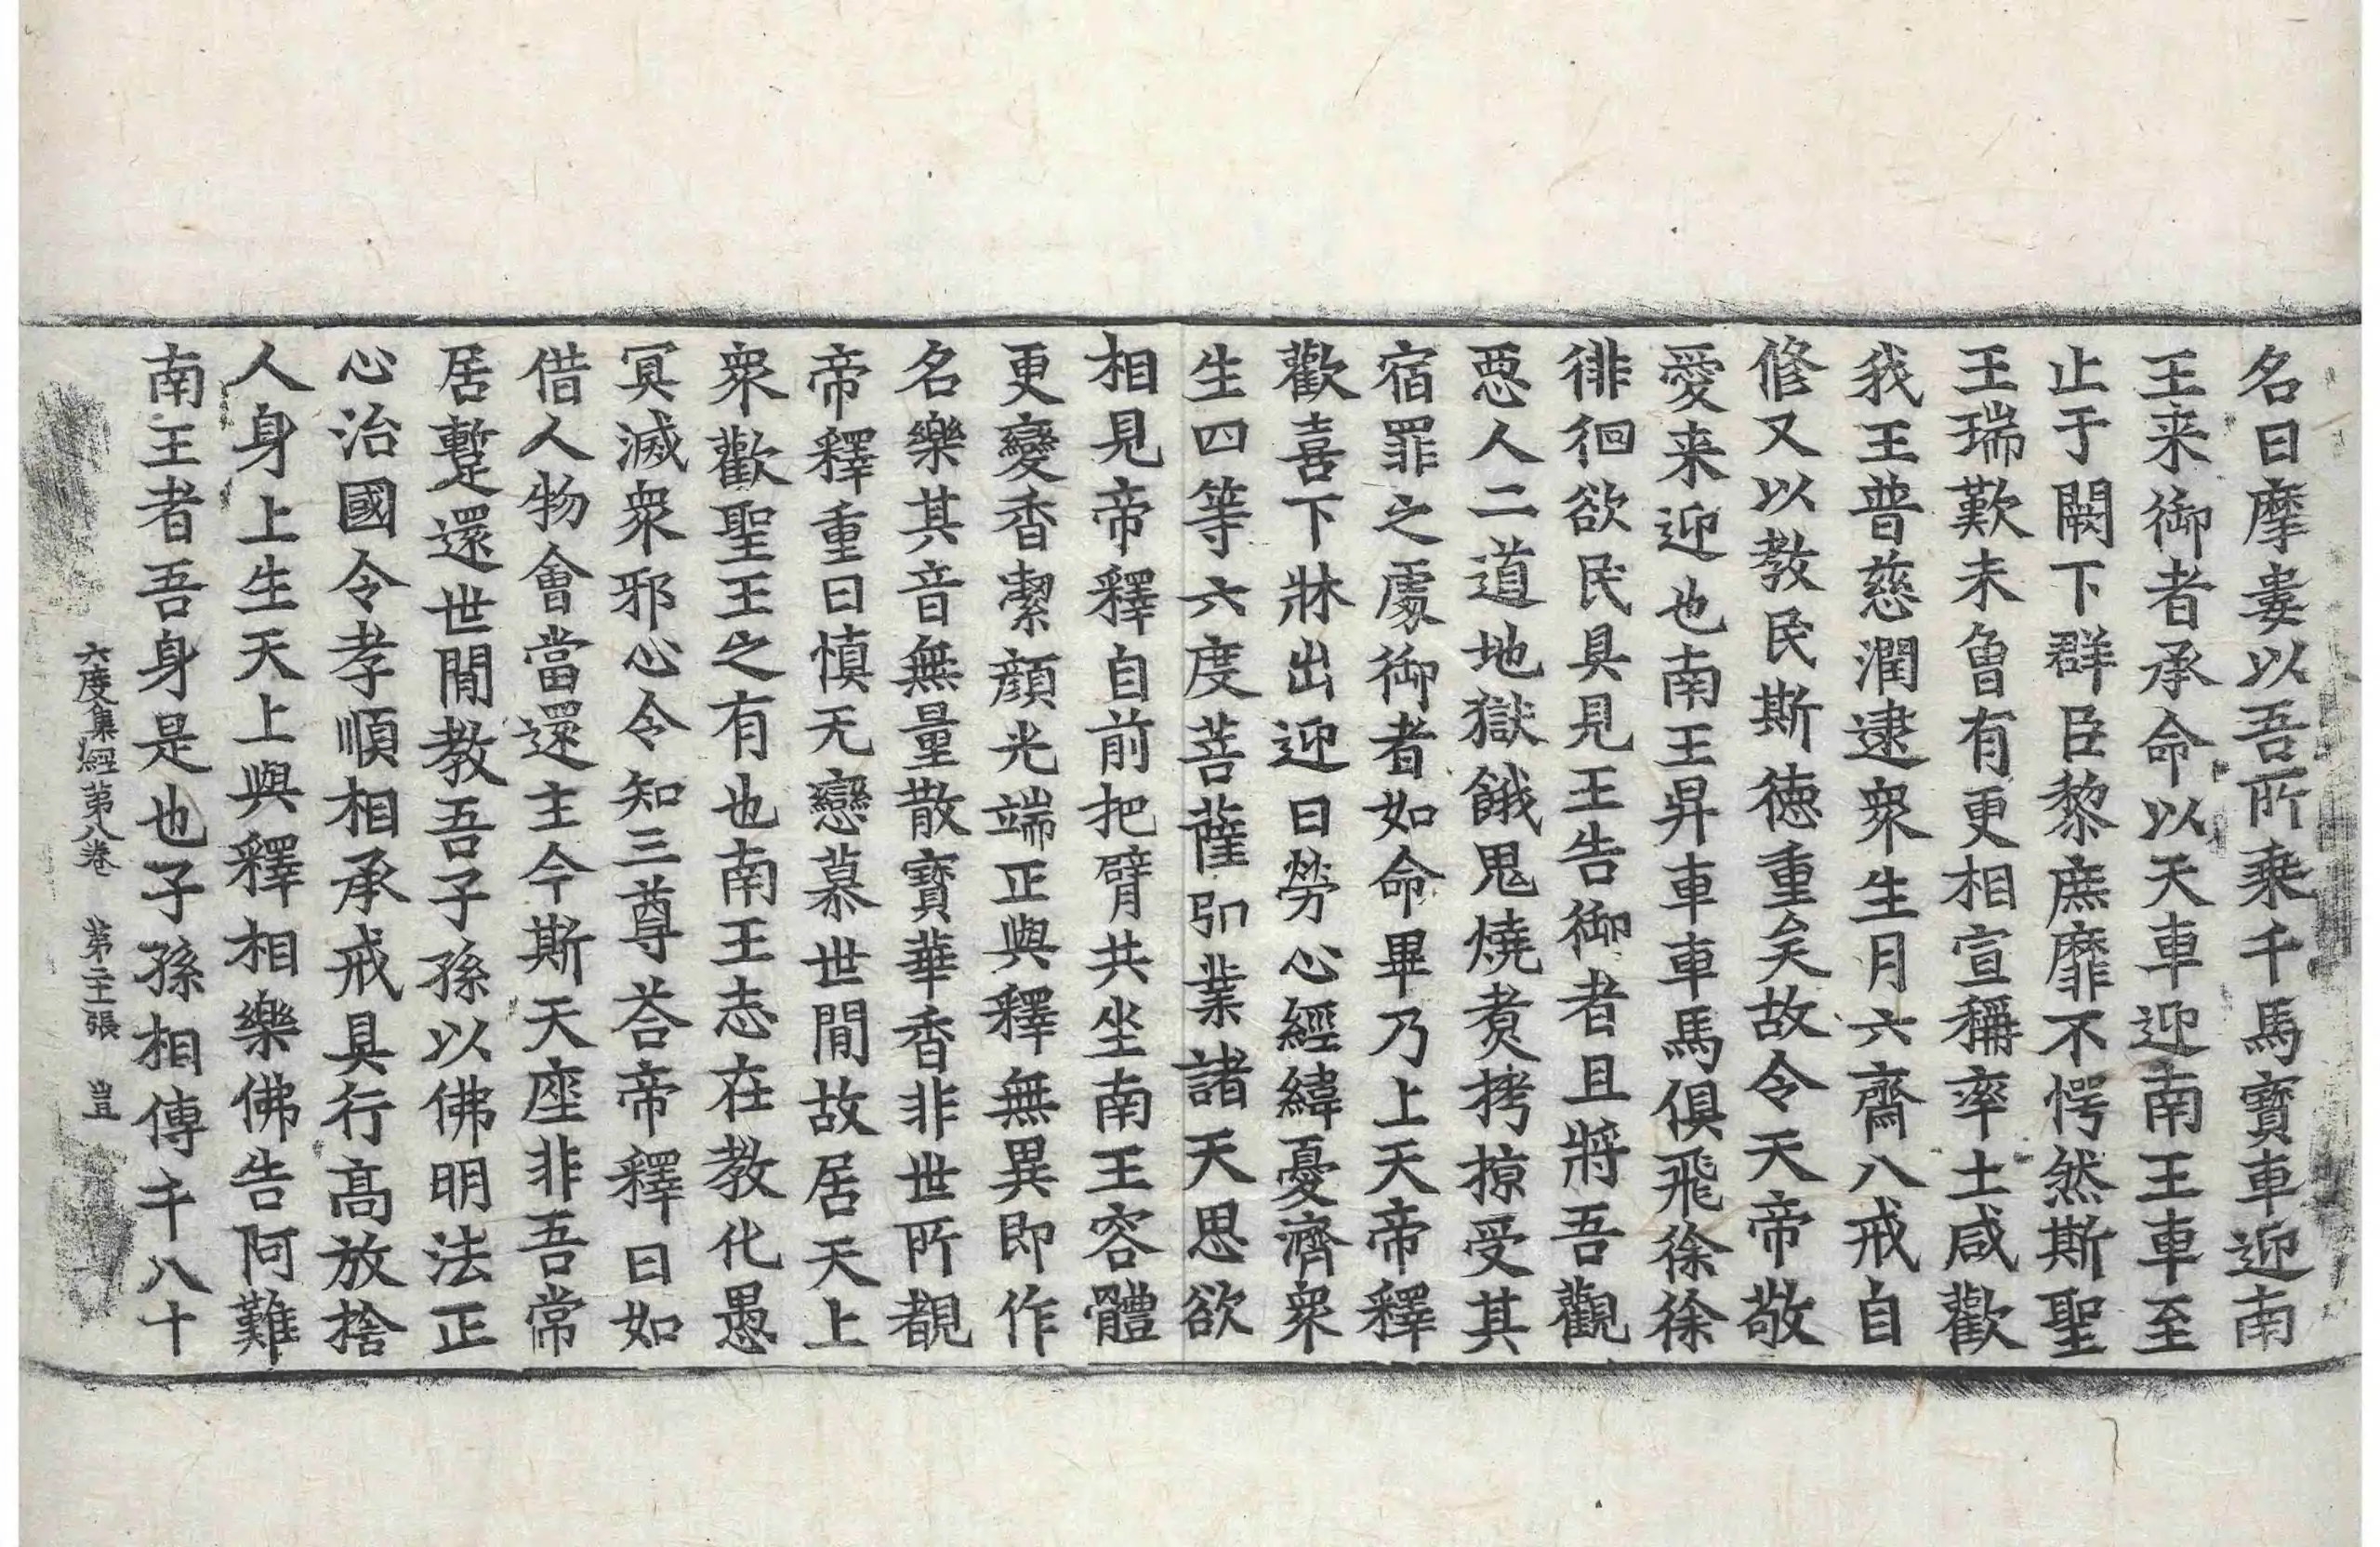 名曰摩婁以吾所乘千馬寶車迎南
王来御者承命以天車迎南王車至
止于闕下群臣黎庶靡不愕然斯聖
王瑞歎未曾有更相宣稱率土咸歡
我王普慈潤逮衆生月六齋八戒自
修又以教民斯徳重矣故令天帝敬
愛来迎也南王昇車車馬俱飛徐徐
徘徊欲民具見王告御者且將吾觀
惡人二道地獄餓鬼燒煑拷掠受其
宿罪之處御者如命畢乃上天帝釋
歡喜下牀出迎曰勞心經緯憂濟衆
生四等六度菩薩弘業諸天思欲
相見帝釋自前把臂共坐南王容體
更變香潔顔光端正與釋無異即作
名樂其音無量散寶華香非世所覩
帝釋重曰慎无戀慕世間故居天上
衆歡聖王之有也南王志在教化愚
冥滅衆邪心令知三尊荅帝釋曰如
借人物會當還主今斯天座非吾常
居蹔還世間教吾子孫以佛明法正
心治國令孝順相承戒具行高放捨
人身上生天上與釋相樂佛告阿難
南王者吾身是也子孫相傳千八十
六度集經第八卷　第二十張　豈